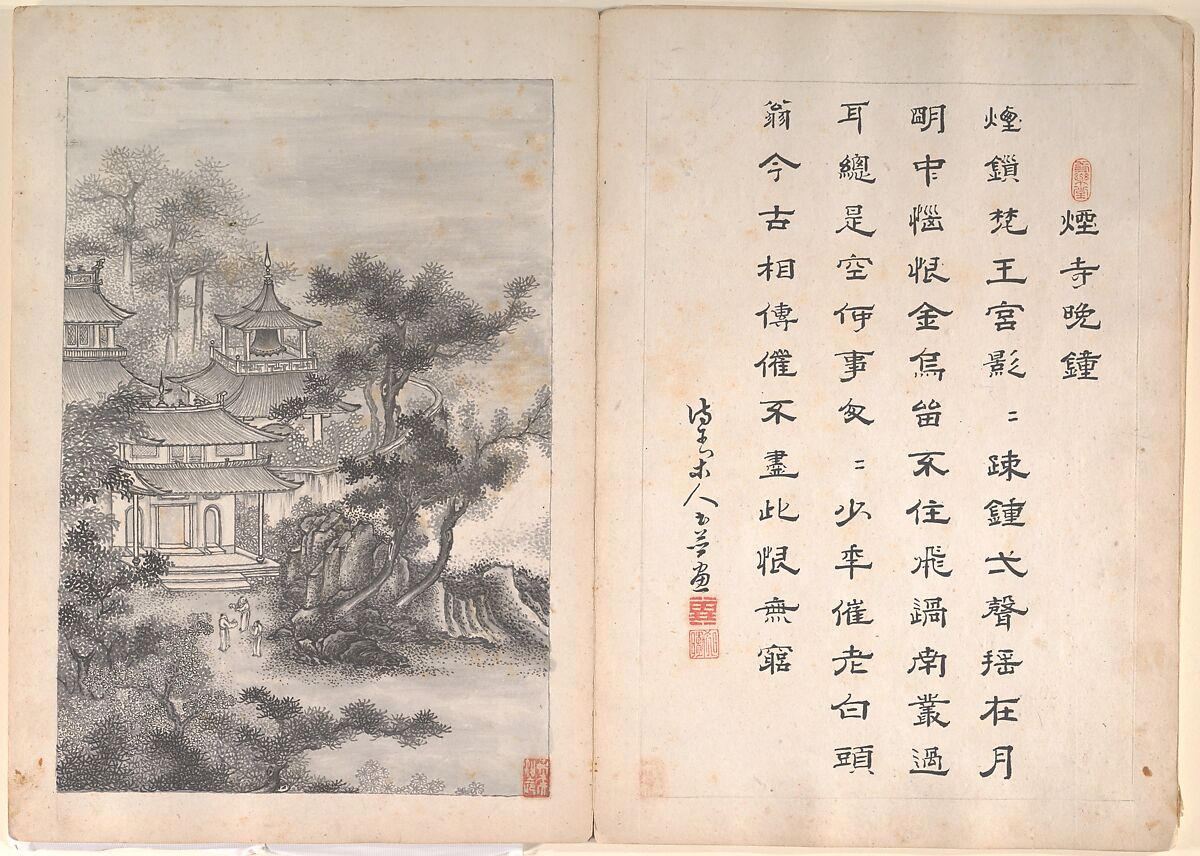 煙寺晚鐘
煙鎖梵王宮影〻疎鍾弌聲揺在月
明中惱恨金烏留不住飛過南叢過
耳總是空何事匆〻少年催老白頭
翁今古相傳催不盡此恨無窮
木人書并畫